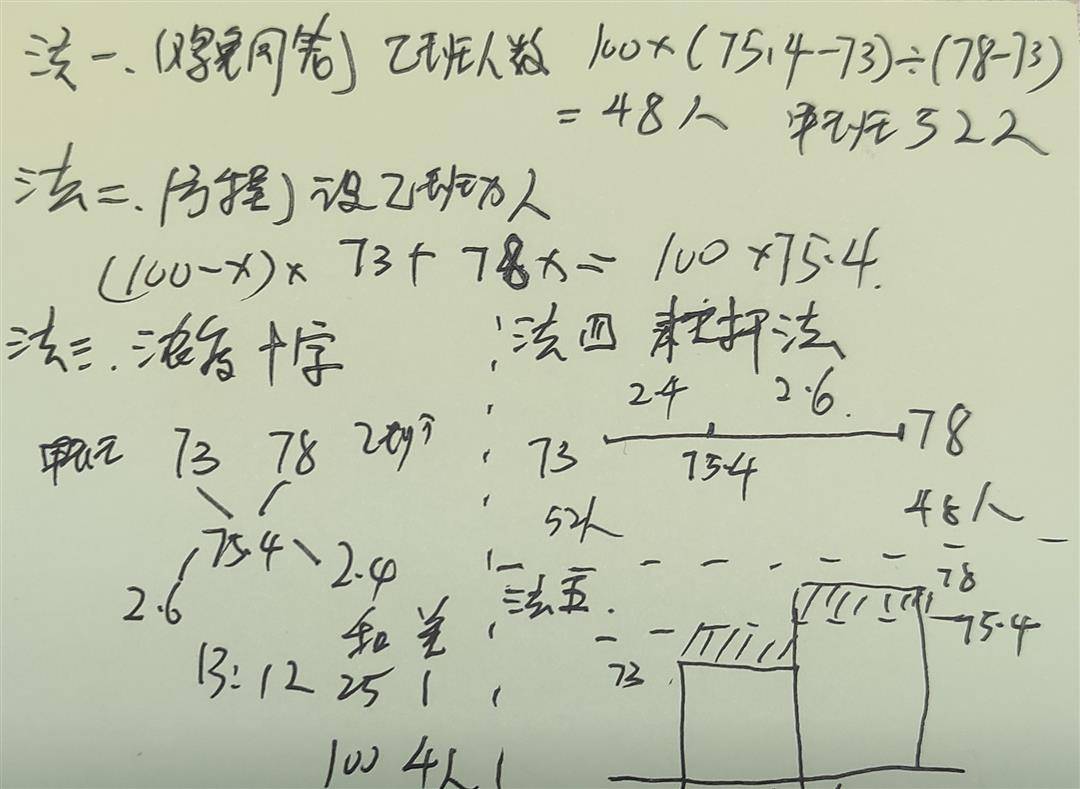 法一.(鸡兔同笼) 乙班人数 100×(75.4-73)÷(78-73)
=48人 甲班52人
法二.(方程)设乙班x人
(100-x)×73+78x=100×75.4.
法三.浓度十字
甲班 73 78 乙班
75.4
2.6 2.4
和 差
13:12 25 1
100 4人
法四 杠杆法
2.4 2.6.
73 78
75.4
52人 48人
法五.
78
75.4
73